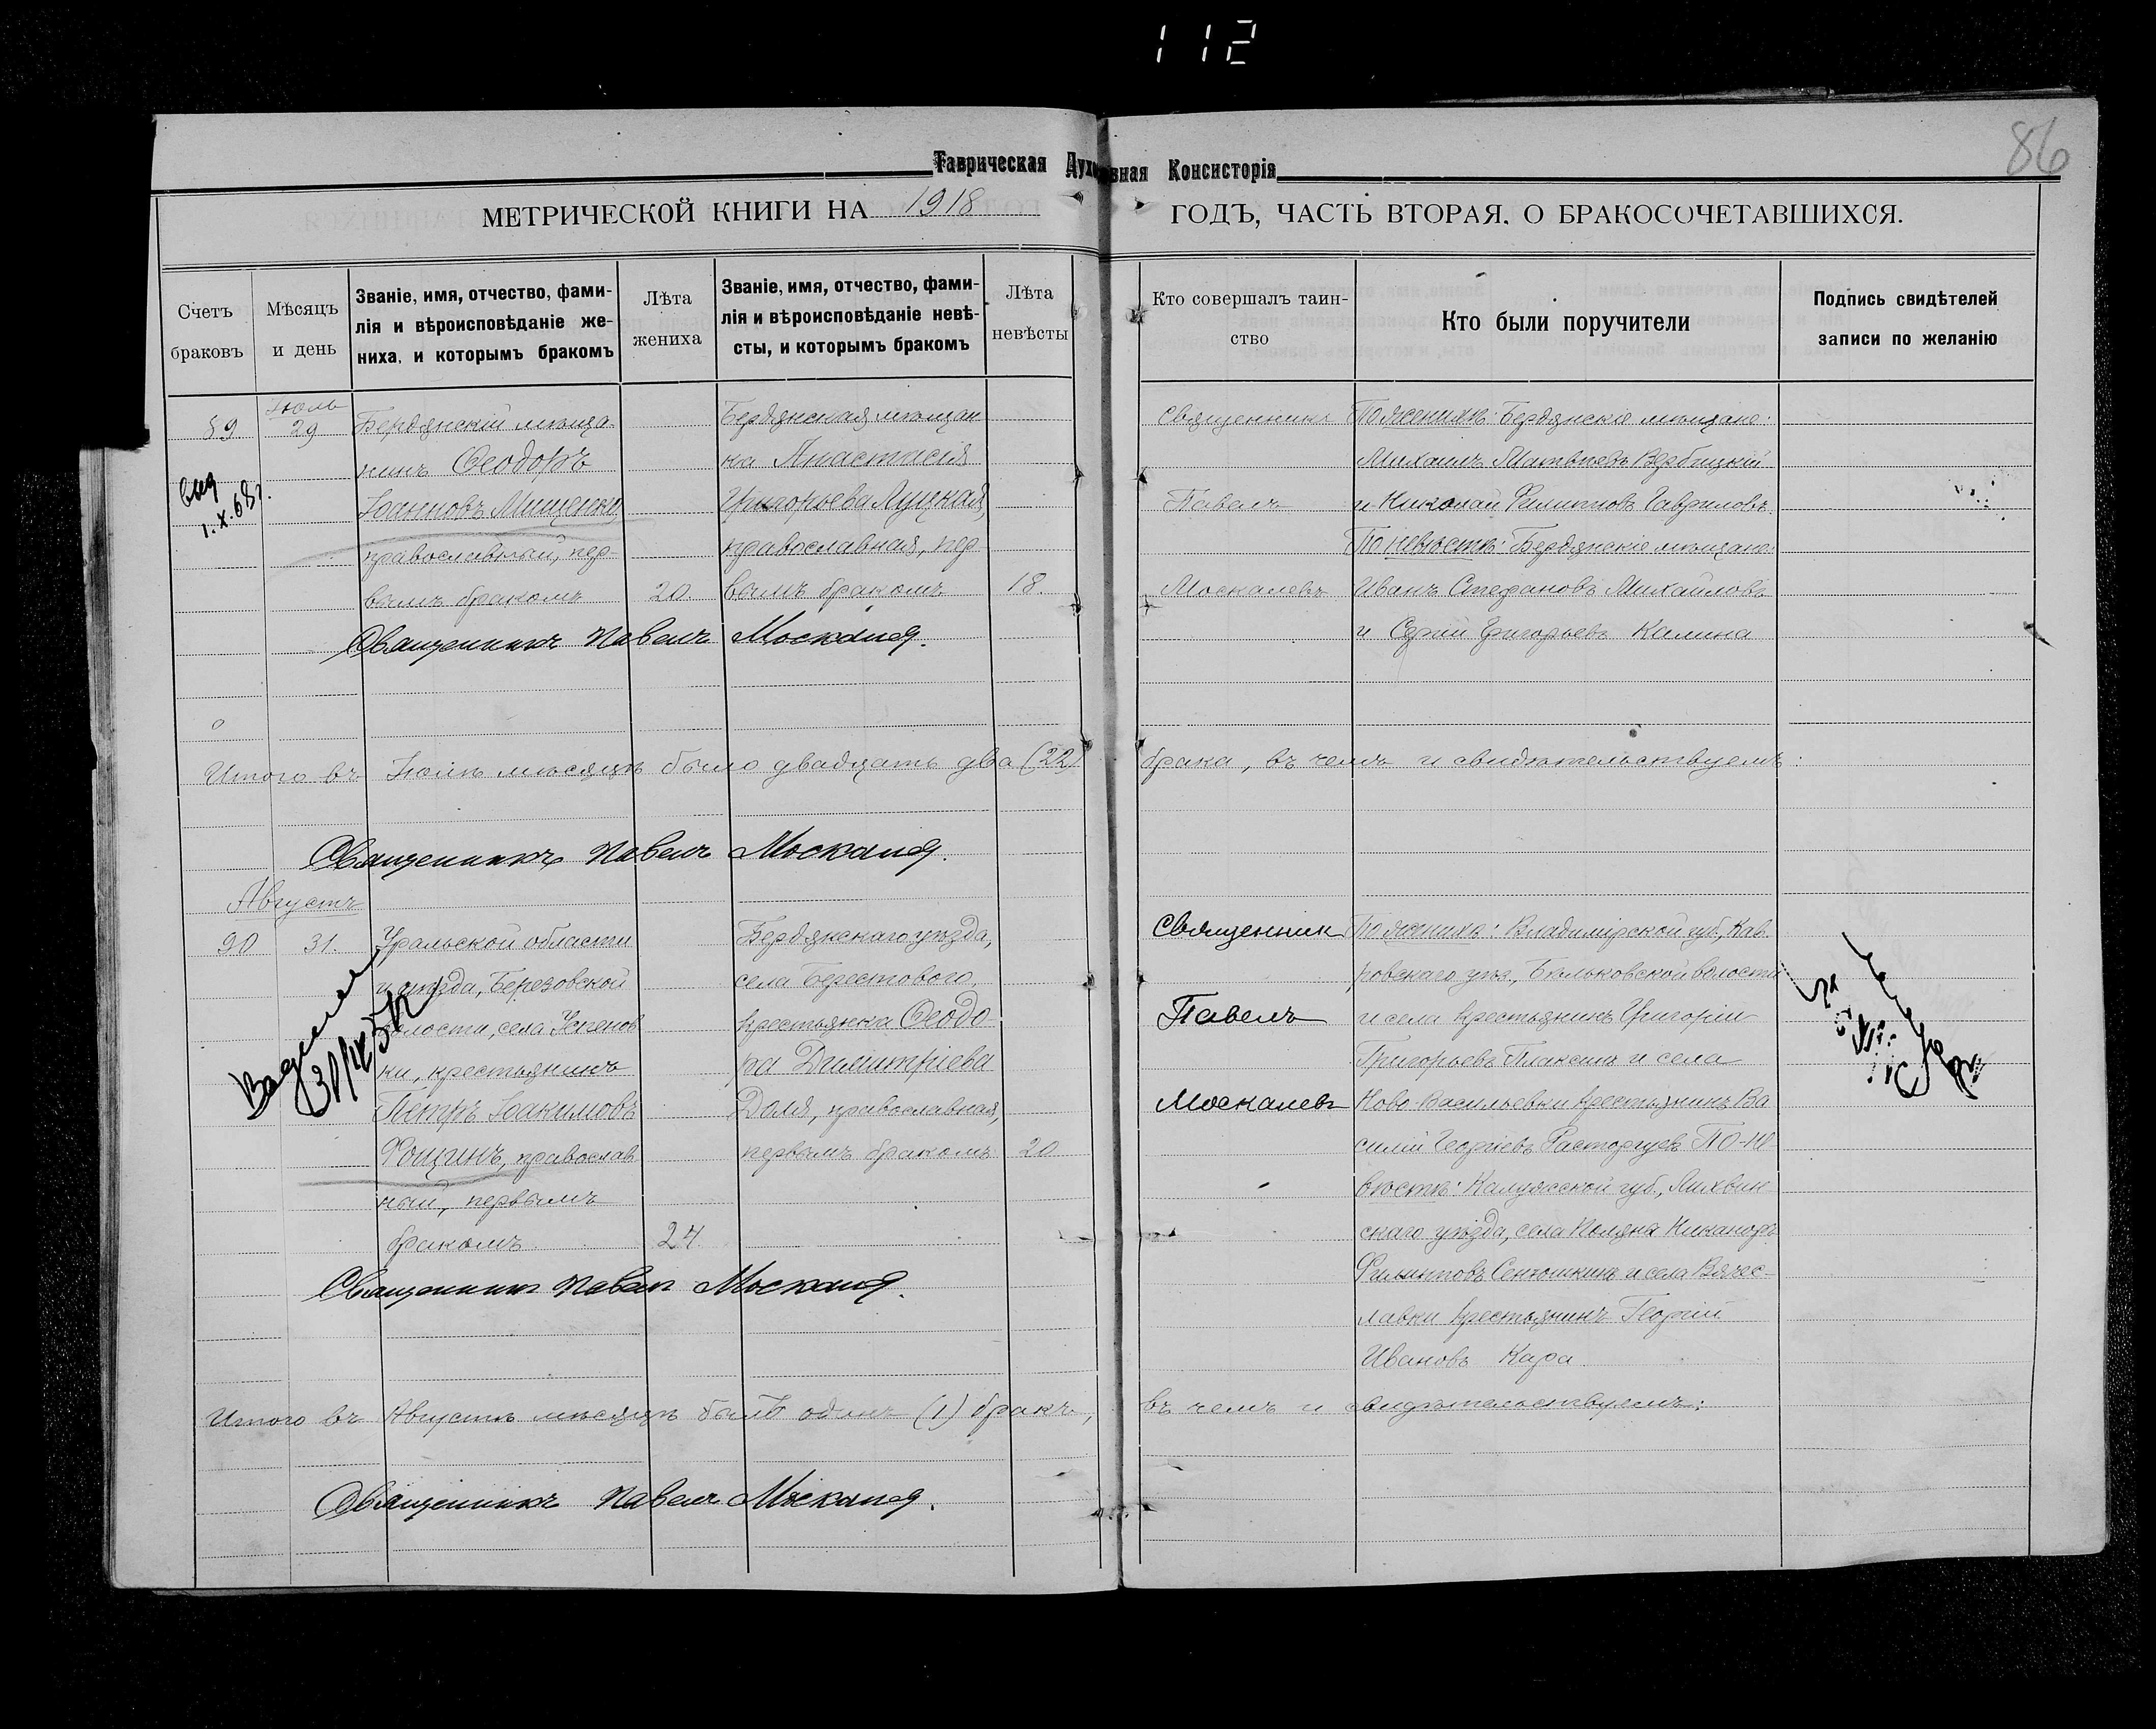 112
86
Таврическая Духовная Консисторія
МЕТРИЧЕСКОЙ КНИГИ НА 1918 ГОДЪ, ЧАСТЬ ВТОРАЯ, О БРАКОСОЧЕТАВШИХСЯ.
Счетъ
браковъ
Мѣсяцъ
и день
Званіе, имя, отчество, фами-
лія и вѣроисповѣданіе же-
ниха, и которымъ бракомъ
Лѣта
жениха
Званіе, имя, отчество, фами-
лія и вѣроисповѣданіе невѣ-
сты, и которымъ бракомъ
Лѣта
невѣсты
Кто совершалъ таин-
ство
Кто были поручители
Подпись свидѣтелей
записи по желанію
89
Іюль
29
Бердянскій мѣща-
нинъ Ѳеодоръ
Іоанновъ Мищенко,
православный, пер-
вымъ бракомъ
20.
Бердянская мѣщан
ка Анастасія
Григорьева Луцкая,
православная, пер
вымъ бракомъ
18.
Священникъ
Павелъ
Москалевъ
По женихѣ: Бердянскіе мѣщане:
Михаилъ Матвѣевъ Вербицкій
и Николай Филипповъ Гавриловъ.
По невѣстѣ: Бердянскіе мѣщане:
Иванъ Стефановъ Михайловъ
и Григорьевъ Калина
1.X.68г.
Священникъ Павелъ Москалев.
Итого въ Іюлѣ мѣсяцѣ было двадцать два (22) брака, въ чемъ и свидѣтельствуемъ:
Священникъ Павелъ Москалев.
Августъ
90
31.
Уральской области
и уѣзда, Березовской
волости, села Успенов
ки, крестьянинъ
Петръ Іоакимовъ
Фощинъ, православ
ный, первымъ
бракомъ
24.
Бердянскаго уѣзда,
села Берестового,
крестьянка Ѳеодо
ра Димитріева
Доля, православная,
первымъ бракомъ
20
Священник
Павелъ
Москалевъ
По женихѣ: Владимірской губ., Ков
ровскаго уѣз., Бѣльковской волости
и села крестьянинъ Григорій
Григорьевъ Плаксинъ и села
Ново-Васильевки крестьянинъ Ва
силій Георгіевъ Расторгуевъ. По не
вѣстѣ: Калужской губ., Лихвин
скаго уѣзда, села Никаноръ
Филипповъ Сентюшкинъ и села Вячес-
лавки крестьянинъ Георгій
Ивановъ Кара.
Священник Павел Москалев.
Итого въ Августѣ мѣсяцѣ былъ одинъ (1) бракъ, въ чемъ и свидѣтельствуемъ:
Священникъ Павелъ Москалев.